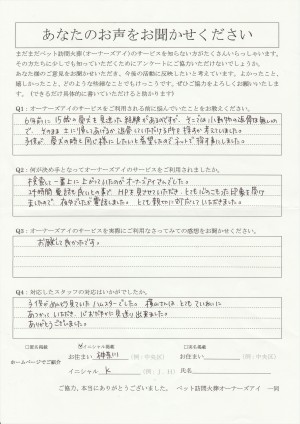 あなたのお声をお聞かせください
まだまだペット訪問火葬(オーナーズアイ)のサービスを知らない方がたくさんいらっしゃいます。
その方たちに少しでも知っていただくためにアンケートにご協力いただけないでしょうか。
あなた様のご意見をお聞かせいただき、今後の活動に反映したいと考えています。よかったこと、
嬉しかったこと、どのような些細なことでもけっこうです。ぜひご協力をよろしくお願いいたしま
す。(できるだけ具体的に書いていただけると助かります)
Q1:オーナーズアイのサービスをご利用される前に悩んでいたことをお教えください。
6年前に15歳の愛犬を見送った経験があるのですが、そこでは小動物の
Q2:何が決め手となってオーナーズアイのサービスをご利用されましたか。
検索して一番上に上がっていたのがオーナーズアイさんでした。
24時間電話も良いとの事で HPを見させていただき、とても
ましたので、夜中でしたが電話しました。とても親切に対応していただきました。
Q3:オーナーズアイのサービスを実際にご利用なさってみての感想をお聞かせください。
お願いして良かったです。
Q4:対応したスタッフの対応はいかがでしたか。
子供がめんどう見ていたハムスターでした。横山さんは とても ていねいに
あつかってくださり、 見送り出来ました。
ありがとうございました。
ホームページでご紹介
□匿名掲載
☑イニシャル掲載
□実名掲載
お住まい 神奈川 (例:中央区)
お住まい (例:中央区)
イニシャル K (例:J. H)
氏名
ご協力、本当にありがとうございました。 ペット訪問火葬オーナーズアイ 一同